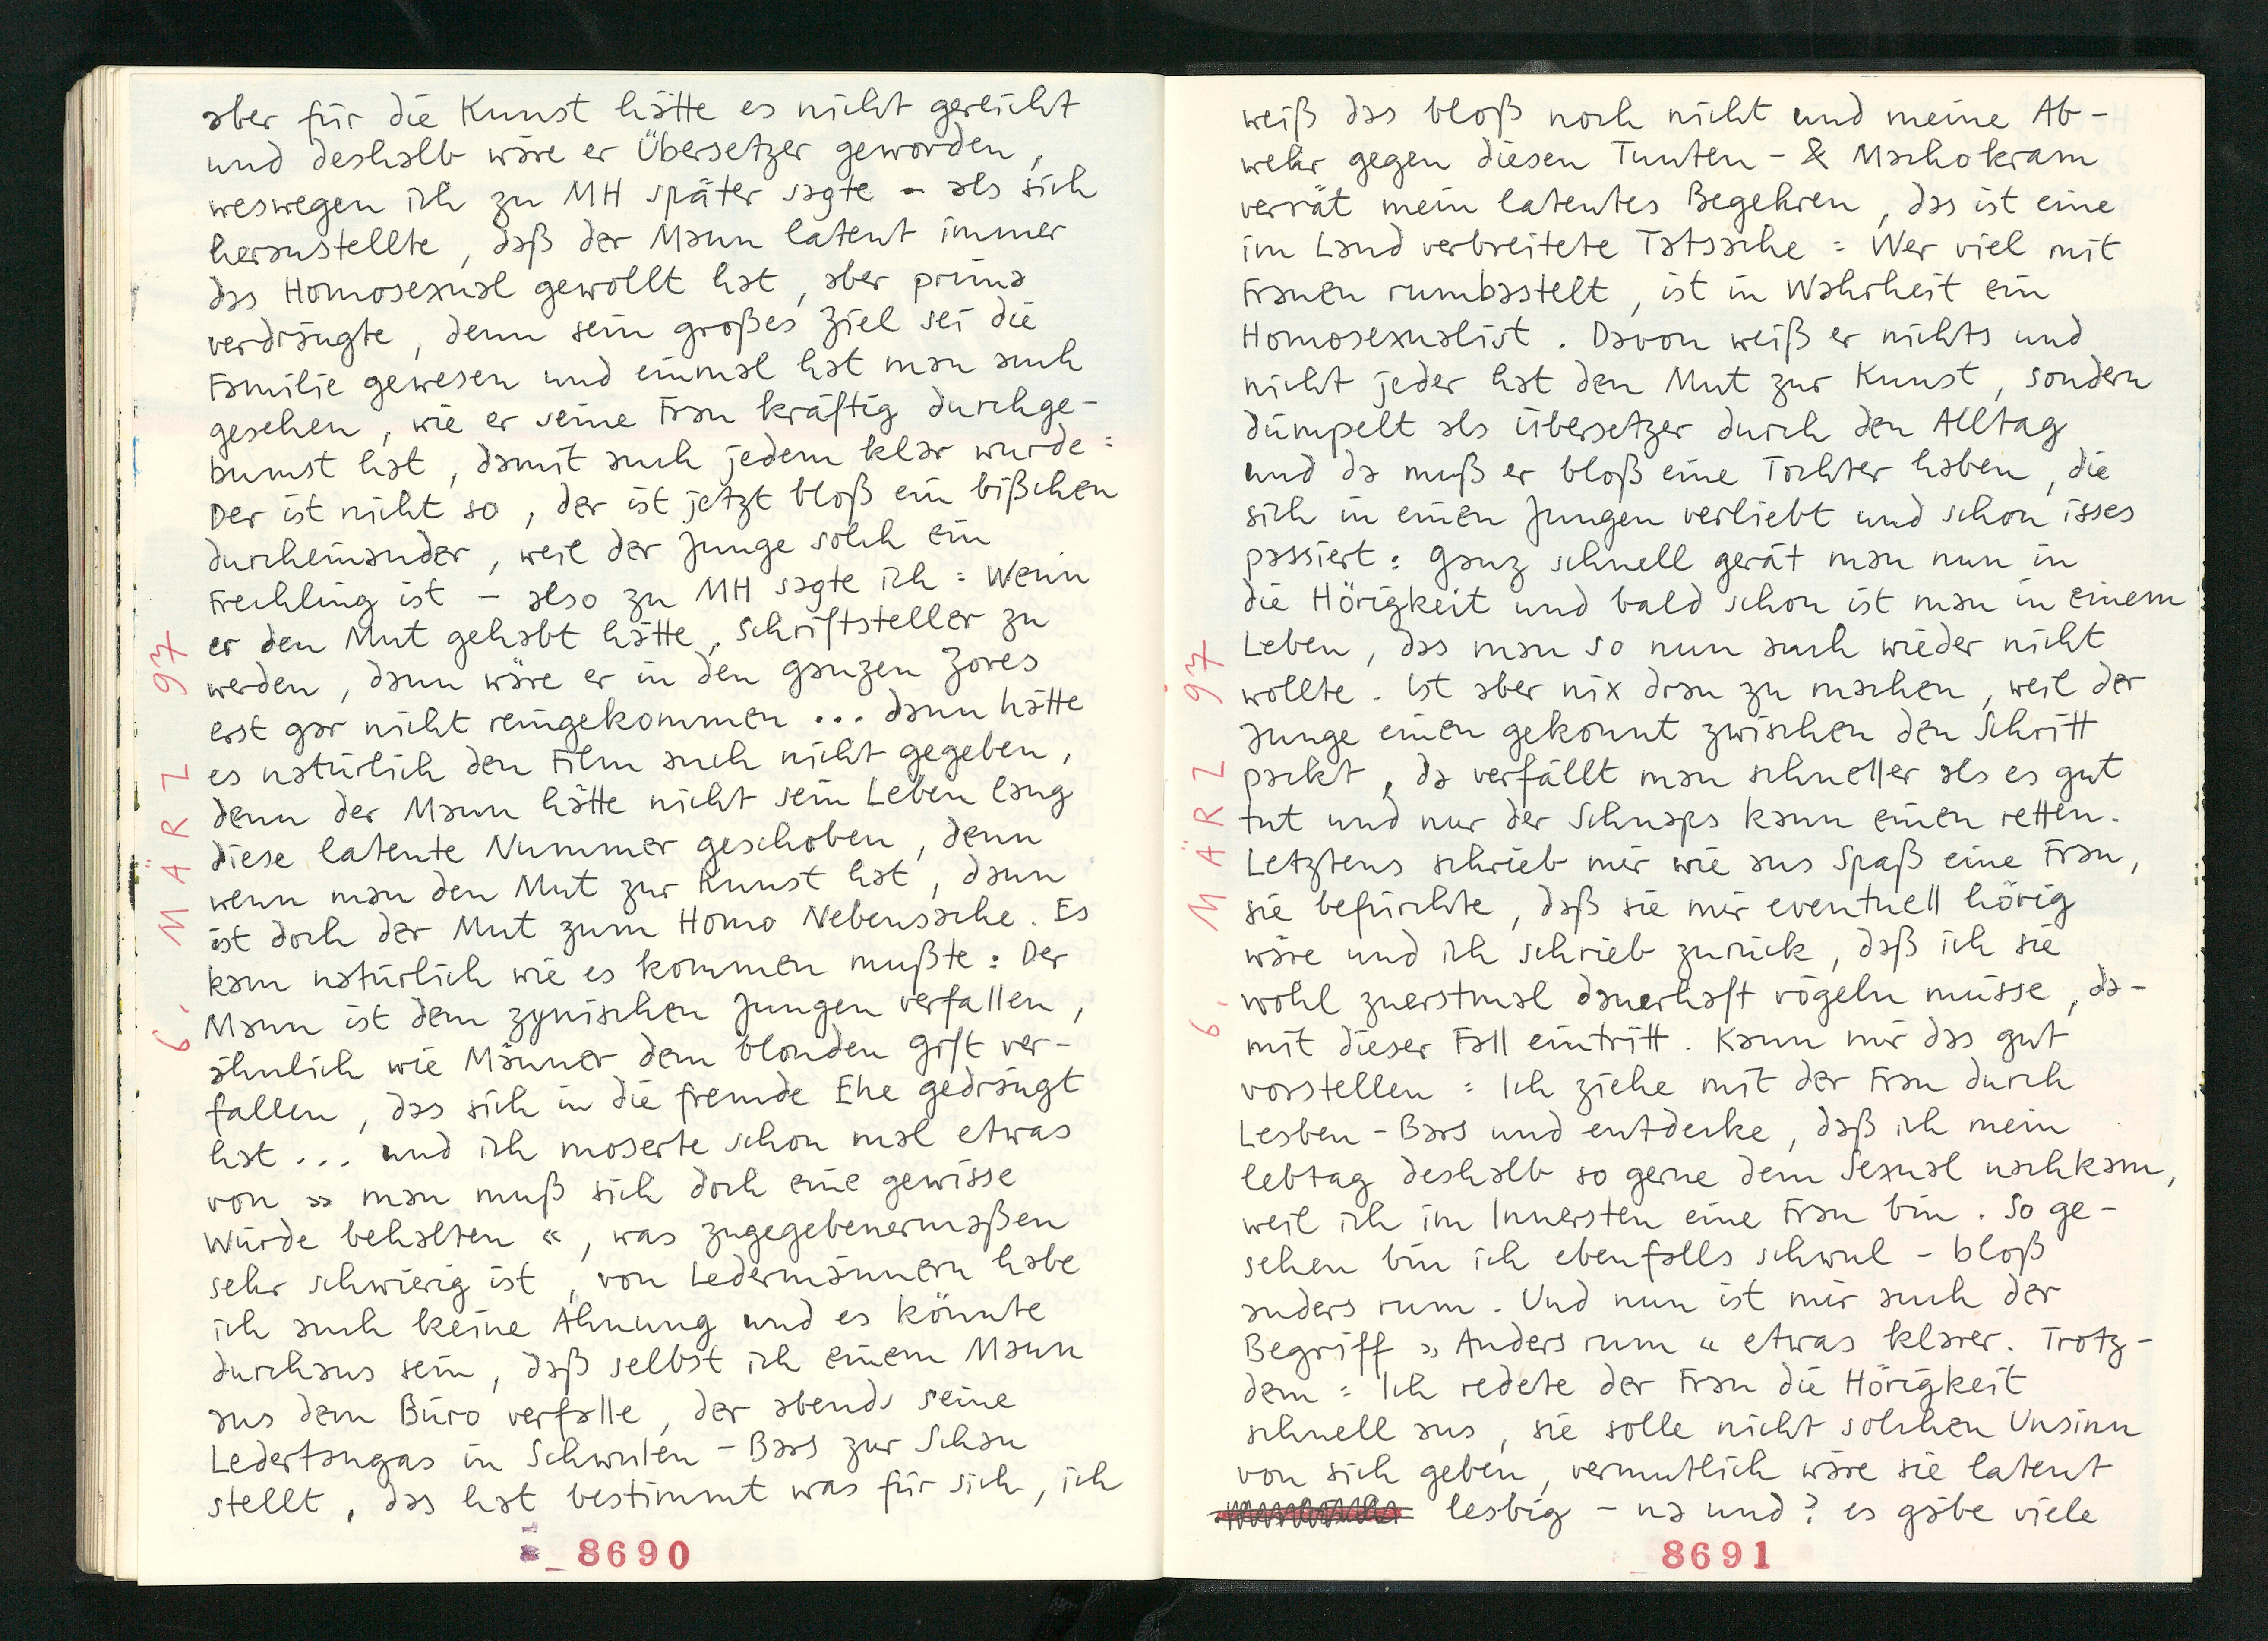 aber für die Kunst hätte es nicht gereicht
und deshalb wäre er Übersetzer geworden,
weswegen ich zu MH später sagte - als sich
herausstellte, daß der Mann latent immer
das Homosexual gewollt hat, aber prima
verdrängte, denn sein großes Ziel sei die
Familie gewesen und einmal hat man auch
gesehen, wie er seine Frau kräftig durchge-
bumst hat, damit auch jedem klar wurde:
Der ist nicht so, der ist jetzt bloß ein bißchen
durcheinander, weil der Junge solch ein
Frechling ist - also zu MH sagte ich: Wenn
er den Mut gehabt hätte, Schriftsteller zu
werden, dann wäre er in den ganzen Zores
erst gar nicht reingekommen ... dann hätte
es natürlich den Film auch nicht gegeben,
denn der Mann hätte nicht sein Leben lang
diese latente Nummer geschoben, denn
wenn man den Mut zur Kunst hat, dann
ist doch der Mut zum Homo Nebensache. Es
kam natürlich wie es kommen mußte: Der
Mann ist dem zynischen Jungen verfallen,
ähnlich wie Männer dem blonden Gift ver-
fallen, das sich in die fremde Ehe gedrängt
hat ... und ich moserte schon mal etwas
von »man muß sich doch eine gewisse
Würde behalten«, was zugegebenermaßen
sehr schwierig ist, von Ledermännern habe
ich auch keine Ahnung und es könnte
durchaus sein, daß selbst ich einem Mann
aus dem Büro verfalle, der abends seine
Ledertangas in Schwulen-Bars zur Schau
stellt, das hat bestimmt was für sich, ich
6. MÄRZ 97
8690
weiß das bloß noch nicht und meine Ab-
wehr gegen diesen Tunten- & Machokram
verrät mein latentes Begehren, das ist eine
im Land verbreitete Tatsache: Wer viel mit
Frauen rumbastelt, ist in Wahrheit ein
Homosexualist. Davon weiß er nichts und
nicht jeder hat den Mut zur Kunst, sondern
dümpelt als Übersetzer durch den Alltag
und da muß er bloß eine Tochter haben, die
sich in einen Jungen verliebt und schon isses
passiert: Ganz schnell gerät man nun in
die Hörigkeit und bald schon ist man in einem
Leben, das man so nun auch wieder nicht
wollte. Ist aber nix dran zu machen, weil der
Junge einen gekonnt zwischen den Schritt
packt, da verfällt man schneller als es gut
tut und nur der Schnaps kann einen retten.
Letztens schrieb mir wie aus Spaß eine Frau,
sie befürchte, daß sie mir eventuell hörig
wäre und ich schrieb zurück, daß ich sie
wohl zuerstmal dauerhaft vögeln müsse, da-
mit dieser Fall eintritt. Kann mir das gut
vorstellen: Ich ziehe mit der Frau durch
Lesben-Bars und entdecke, daß ich mein
lebtag deshalb so gerne dem Sexual nachkam,
weil ich im Innersten eine Frau bin. So ge-
sehen bin ich ebenfalls schwul - bloß
anders rum. Und nun ist mir auch der
Begriff »Anders rum« etwas klarer. Trotz-
dem: Ich redete der Frau die Hörigkeit
schnell aus, sie solle nicht solchen Unsinn
von sich geben, vermutlich wäre sie latent
lesbig - na und? es gäbe viele
6. MÄRZ 97
8691